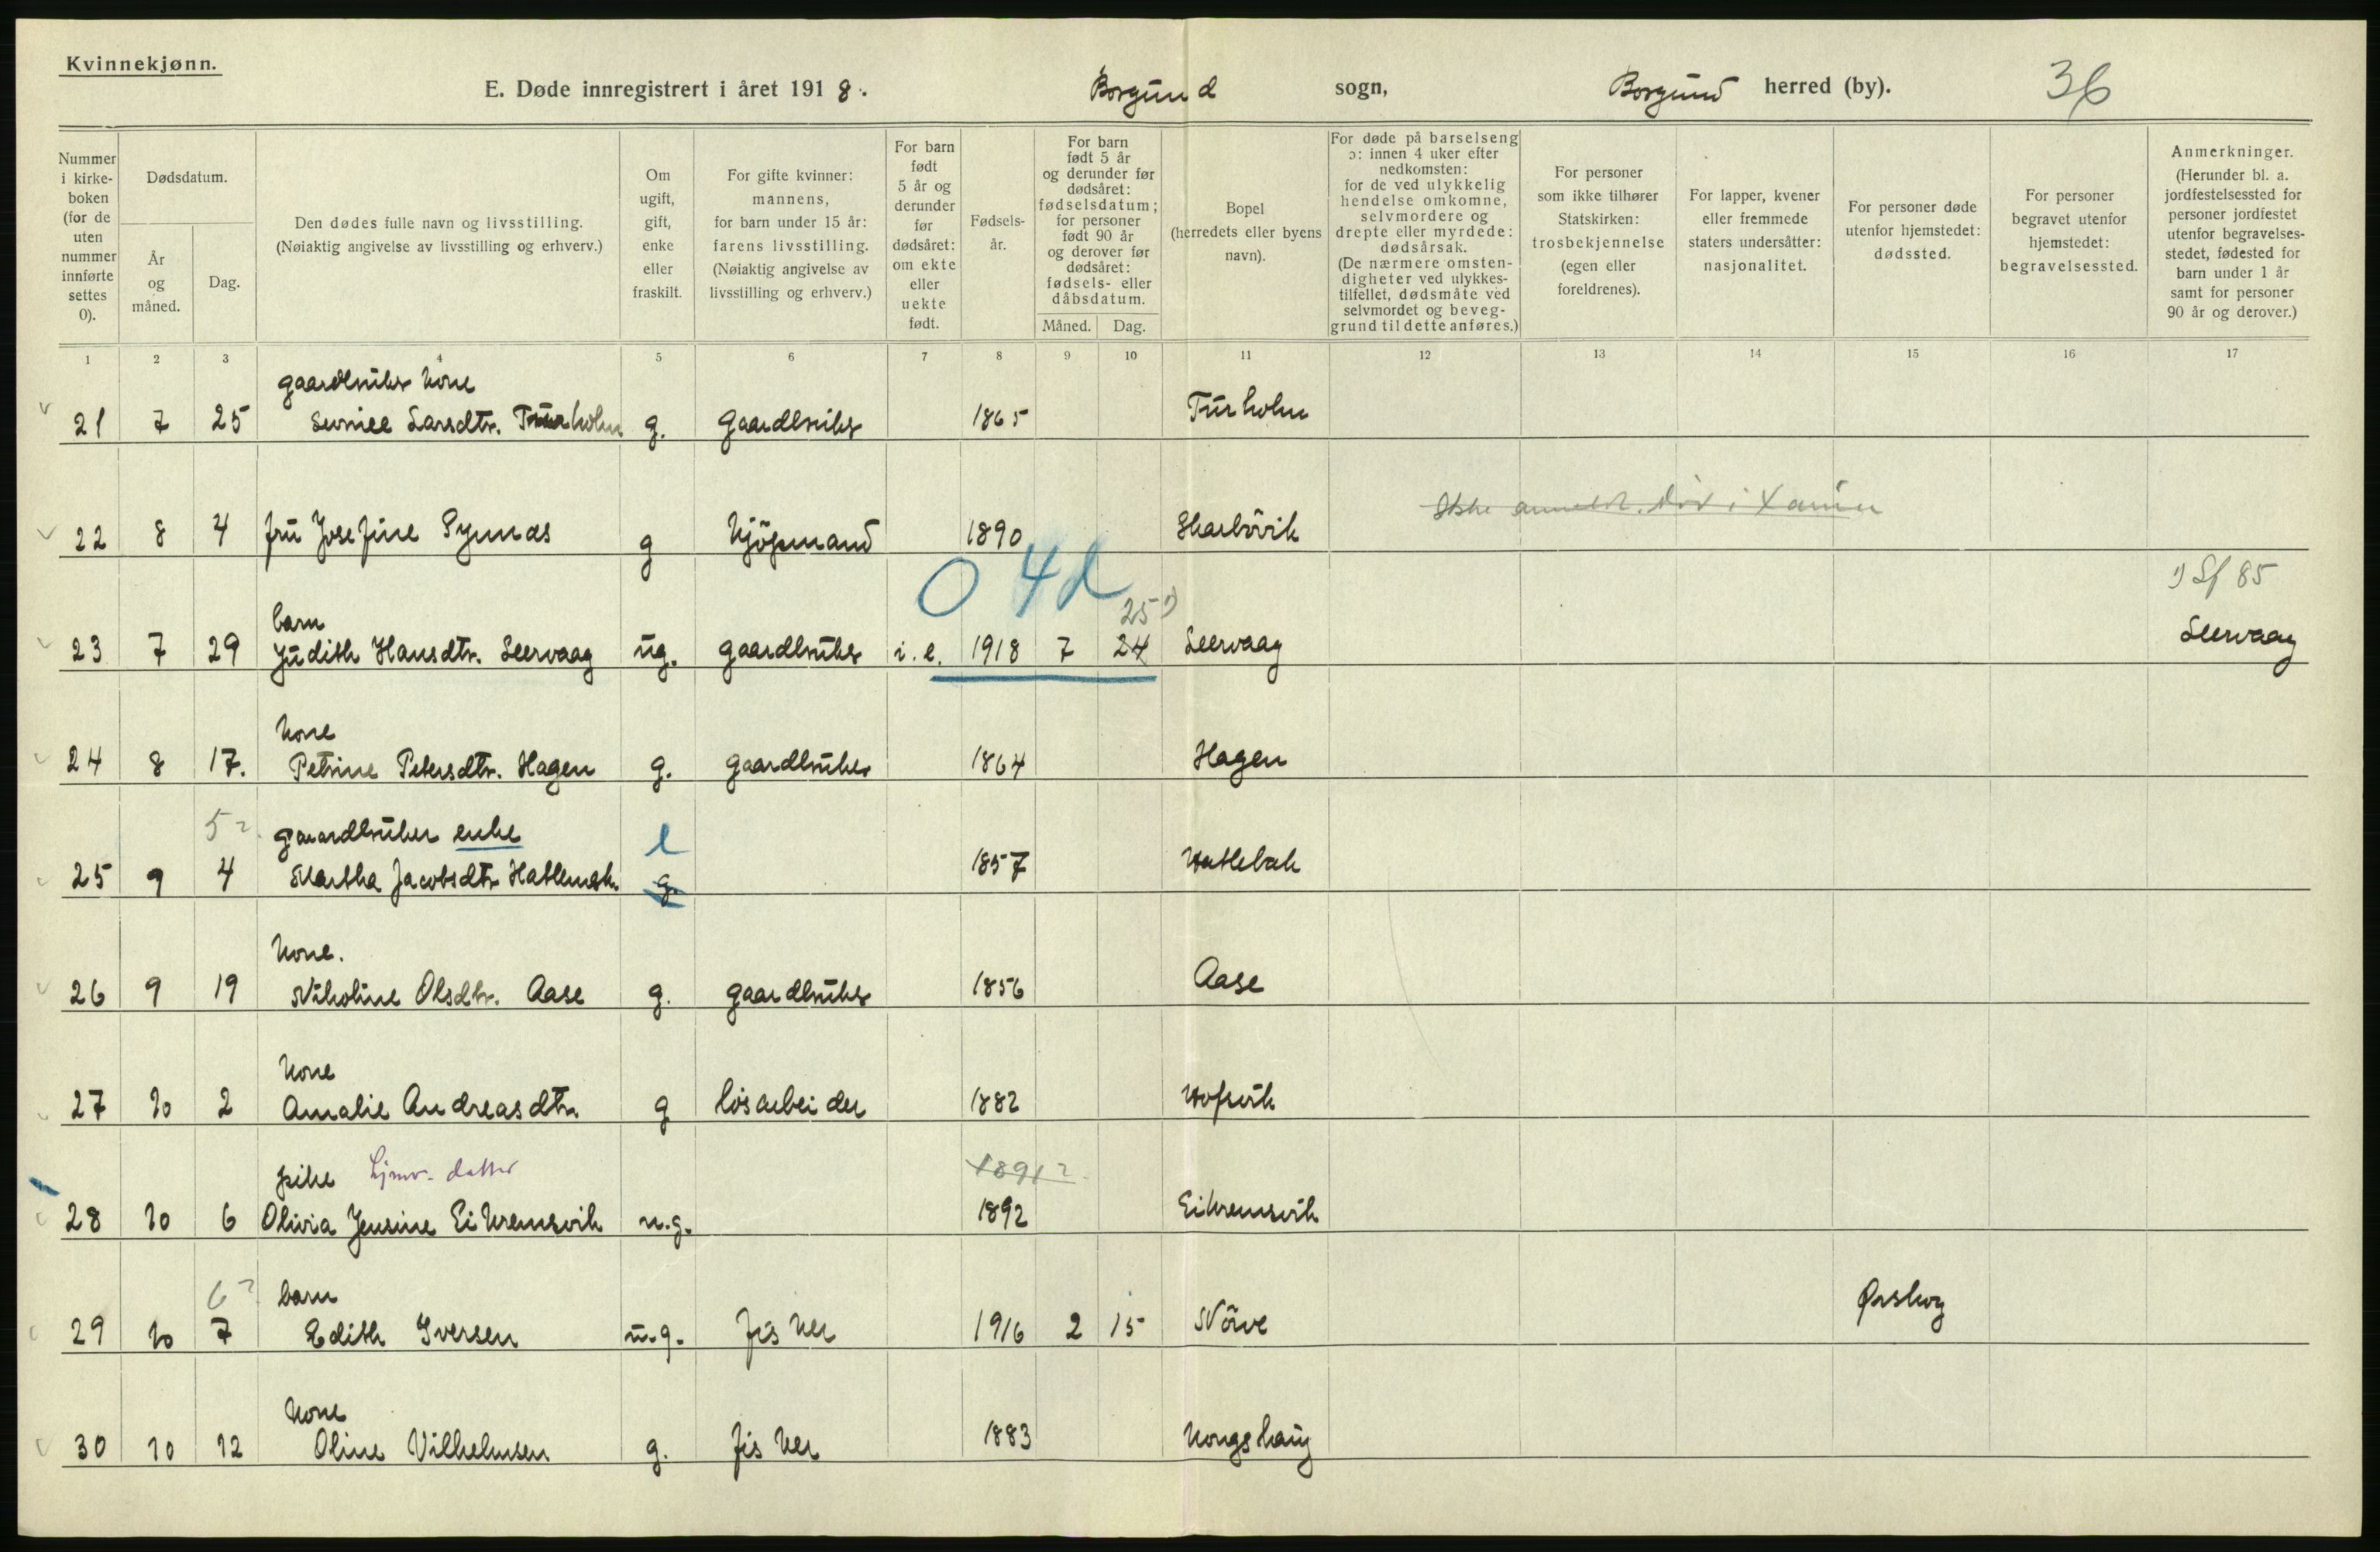 Kvinnekjønn.
E. Døde innregistrert i året 1918. Borgund sogn, Borgund herred (by). 36
Nummer i kirkeboken (for de uten nummer innførte settes 0).
Dødsdatum.
År og måned.
Dag.
Den dødes fulle navn og livsstilling. (Nøiaktig angivelse av livsstilling og erhverv.)
Om ugift, gift, enke eller fraskilt.
For gifte kvinner: mannens, for barn under 15 år: farens livsstilling. (Nøiaktig angivelse av livsstilling og erhverv.)
For barn født 5 år og derunder før dødsåret: om ekte eller uekte født.
Fødselsår.
For barn født 5 år og derunder før dødsåret: fødselsdatum; for personer født 90 år og derover før dødsåret: fødsels- eller dåbsdatum.
Måned. Dag.
Bopel (herredets eller byens navn).
For døde på barselseng ɔ: innen 4 uker efter nedkomsten: for de ved ulykkelig hendelse omkomne, selvmordere og drepte eller myrdede: dødsårsak. (De nærmere omstendigheter ved ulykkestilfellet, dødsmåte ved selvmordet og beveggrund til dette anføres.)
For personer som ikke tilhører Statskirken: trosbekjennelse (egen eller foreldrenes).
For lapper, kvener eller fremmede staters undersåtter: nasjonalitet.
For personer døde utenfor hjemstedet: dødssted.
For personer begravet utenfor hjemstedet: begravelsessted.
Anmerkninger. (Herunder bl. a. jordfestelsessted for personer jordfestet utenfor begravelsesstedet, fødested for barn under 1 år samt for personer 90 år og derover.)
1 2 3 4 5 6 7 8 9 10 11 12 13 14 15 16 17
gaardbruker kone
21 7 25 Larsdtr. Turholm g. gaardbruker 1865 Turholm
22 8 4 fru Josefine Synnes g kjøpmand 1890 Skarbövik
0 4d
25 1) 1) Sf 85
barn
23 7 29 Judith Hansdtr. Leervaag ug. gaardbruker i.e. 1918 7 24 Leervaag Leervaag
kone
24 8 17. Petrine Petersdtr. Hagen g. gaardbruker 1864 Hagen
5?. gaardbruker enke e
25 9 4 Martha Jacobsdtr g. 1857
kone.
26 9 19 Nikoline Olsdtr. Aase g. gaardbruker 1856 Aase
kone
27 10 2 Amalie Andreasdtr. g løsarbeider 1882 Hofsvik
pike hjmv. datter 1891?
28 10 6 Olivia Jensine Eikremsvik u.g. 1892 Eikremsvik
6? barn
29 10 7 Edith Iversen u.g. fisker 1916 2 15 Nörve Ørskog
kone
30 10 12 Oline Vilhelmsen g. fisker 1883 Kongshaug